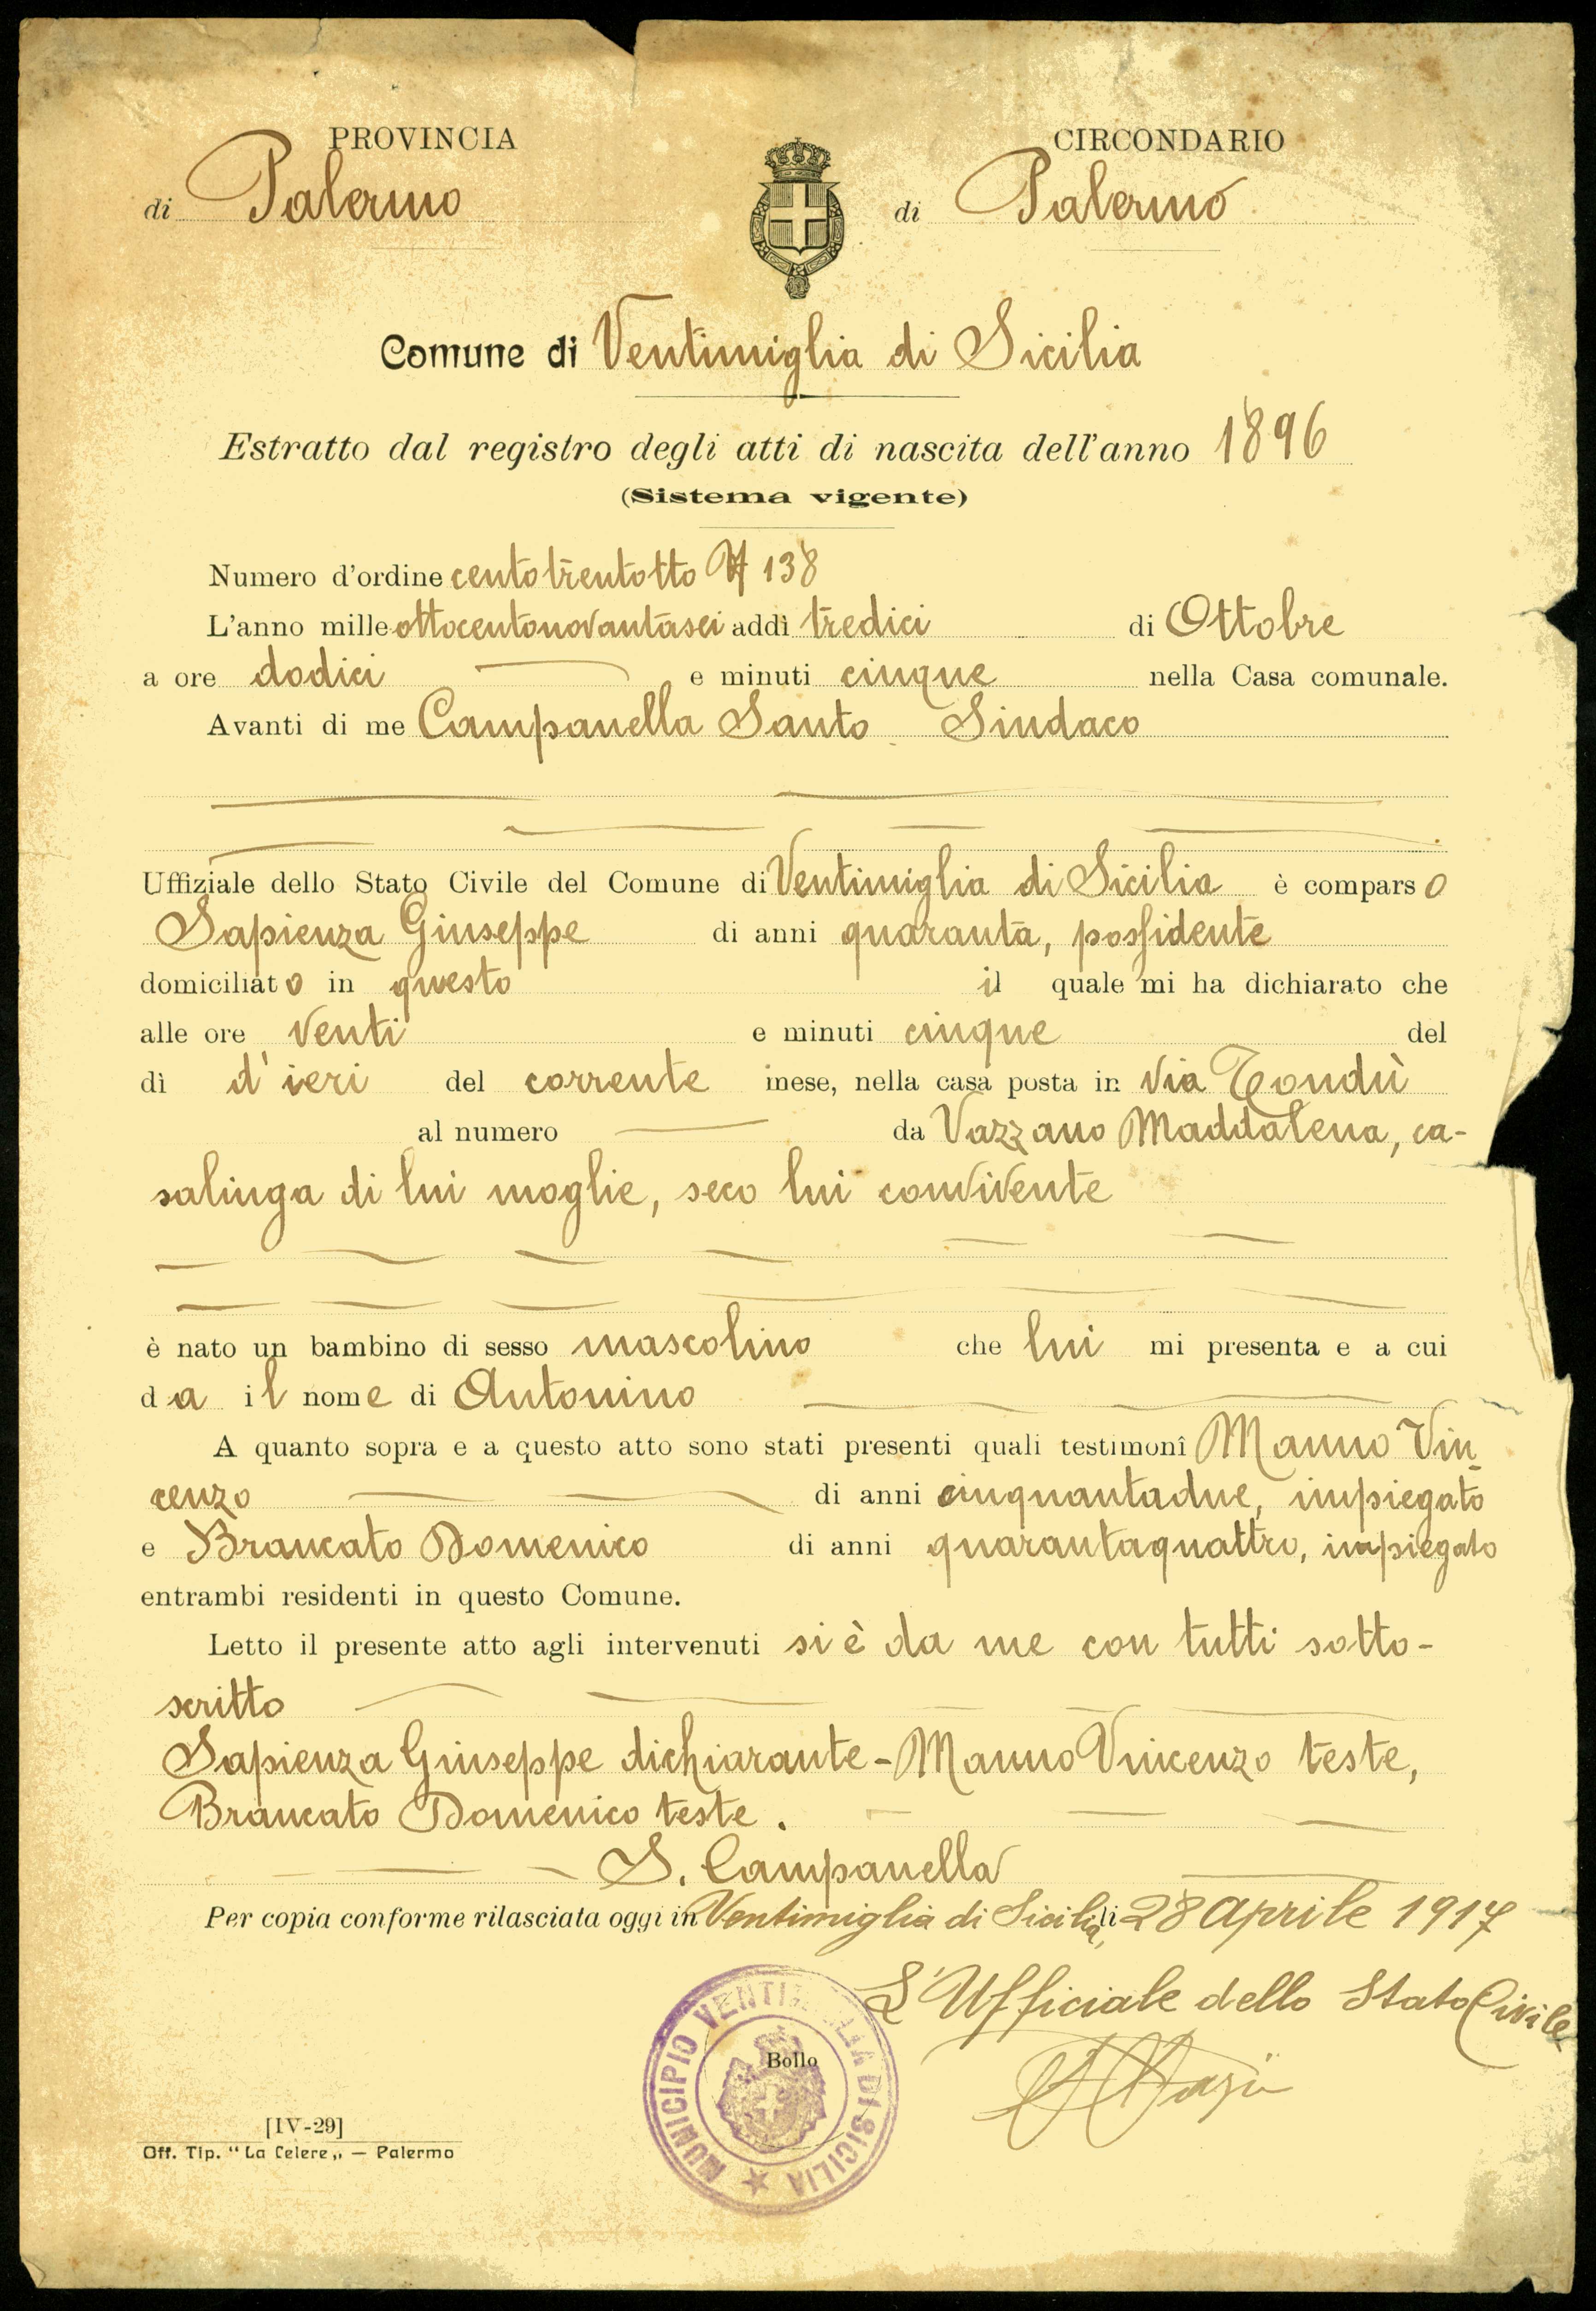 PROVINCIA
di Palermo
CIRCONDARIO
di Palermo
Comune di Ventimiglia di Sicilia
Estratto dal registro degli atti di nascita dell'anno 1896
(Sistema vigente)
Numero d'ordine centotrentotto N 138
L'anno mille ottocentonovantasei addì tredici di Ottobre
a ore dodici e minuti cinque nella Casa comunale.
Avanti di me Campanella Santo Sindaco
Uffiziale dello Stato Civile del Comune di Ventimiglia di Sicilia è comparso
Sapienza Giuseppe di anni quaranta, possidente
domiciliato in questo il quale mi ha dichiarato che
alle ore venti e minuti cinque del
dì d'ieri del corrente mese, nella casa posta in via Tondù
al numero — da Vazzano Maddalena, ca-
salinga di lui moglie, seco lui convivente
è nato un bambino di sesso mascolino che lui mi presenta e a cui
da il nome di Antonino
A quanto sopra e a questo atto sono stati presenti quali testimonî Manno Vin-
cenzo di anni cinquantadue, impiegato
e Brancato Domenico di anni quarantaquattro, impiegato
entrambi residenti in questo Comune.
Letto il presente atto agli intervenuti si è da me con tutti sotto-
scritto
Sapienza Giuseppe dichiarante - Manno Vincenzo teste,
Brancato Domenico teste.
S. Campanella
Per copia conforme rilasciata oggi in Ventimiglia di Sicilia, li 28 Aprile 1917
L'Ufficiale dello Stato Civile
MUNICIPIO VENTIMIGLIA DI SICILIA
Bollo
[IV-29]
Off. Tip. "La Celere„ — Palermo